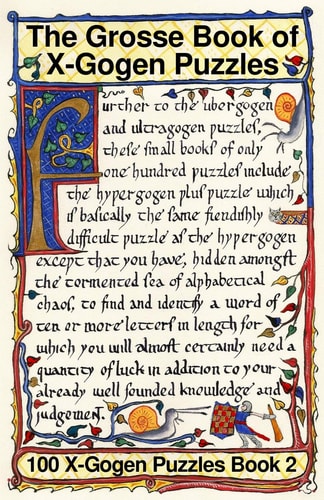 The Grosse Book of
X-Gogen Puzzles
Further to the ubergogen
and ultragogen puzzles,
these small books of only
one hundred puzzles include
the hypergogen plus puzzle which
is basically the same fiendishly
difficult puzzle as the hypergogen
except that you have, hidden amongst
the tormented sea of alphabetical
chaos, to find and identify a word of
ten or more letters in length for
which you will almost certainly need a
quantity of luck in addition to your
already well founded knowledge and
judgement.
100 X-Gogen Puzzles Book 2